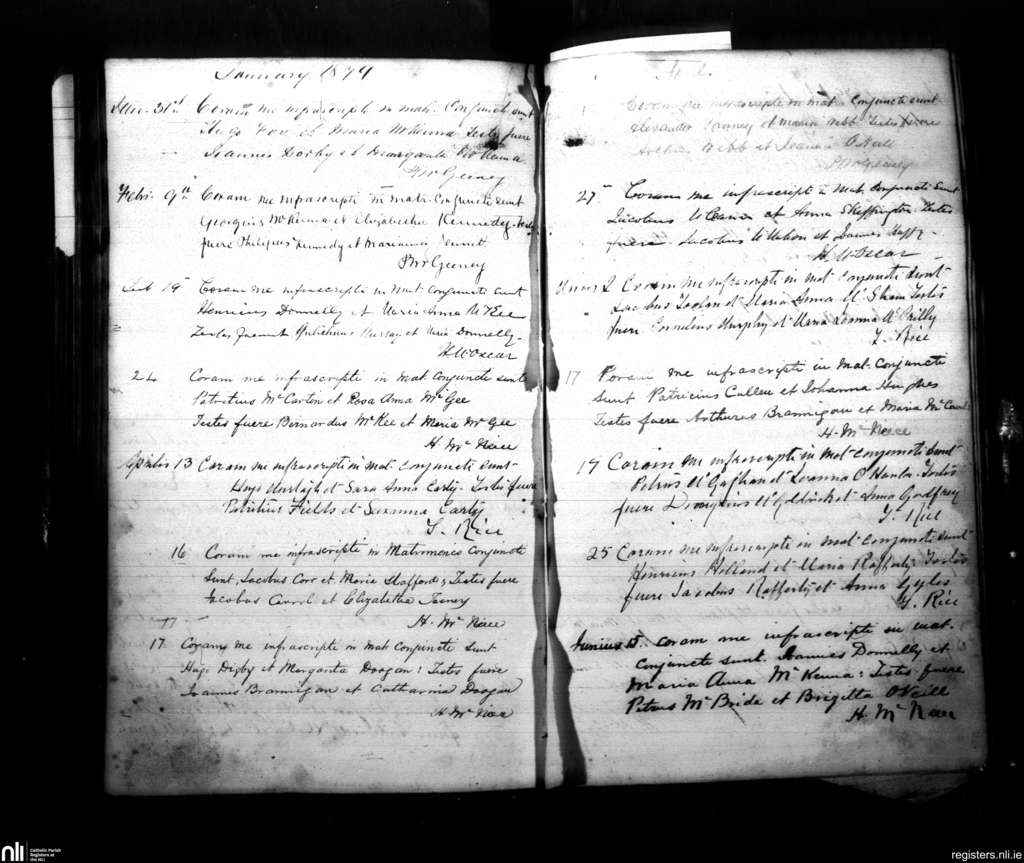 January 1879
31st Coram me infrascripti in mat. Conjuncti sunt
Hugo Fox et Maria McKenna Testes fuere
Joannes et Margarita McKenna
P McGeeney
Febri. 9th Coram me infrascripti in Matr. Conjuncti sunt
Georgius McKenna et Elizabetha Kennedy. Testes
fuere Philippus Kennedy et Marianna
P McGeeney
19 Coram me infrascripti in Mat conjuncti sunt
Henricus Donnelly et Maria Anna McKee
Testes fuerunt Murray et Maria Donnelly
H McOscar
24 Coram me infrascripti in mat. Conjuncti sunt
Patritius McCarten et Rosa Anna McGee
Testes fuere Bernardus McKee et Maria McGee
H. McNeice
Aprilis 13 Coram me infrascripti in mat. conjuncti sunt
Hugo et Sara Anna Carly. Testes fuere
Patritius Fields et Susanna Carly
T. Rice
16 Coram me infrascripti in Matrimonio Conjuncti
Sunt, Jacobus Corr et Maria Stafford; Testes fuere
Jacobus Carrol et Elizabetha Feeney
H. McNeice
17 Coram me infrascripti in mat Conjuncti Sunt
Hugo Digby et Margarita Doogan: Testes fuere
Joannes Brannigan et Catharina Doogan
H McNeice
Feb.
Coram me infrascripti in mat conjuncti sunt
Alexander et Maria Webb Testes fuere
Webb et O'Neill
P McGeeney
27 Coram me infrascripti in Mat. conjuncti Sunt
Jacobus et Anna Skeffington. Testes
fuere Jacobus McMahon et Joannes
H. McOscar
2 Coram me infrascripti in mat. conjuncti sunt
Jacobus Toolan et Maria Anna McShane Testes
fuere Cornelius Murphy et Maria Joanna McCrilly
T. Rice
17 Coram me infrascripti in Mat. Conjuncti
Sunt Patricius Cullen et Johanna Hughes
Testes fuere Arthurus Brannigan et Maria
H. McNeice
17 Coram me infrascripti in mat conjuncti sunt
Petrus McGahan et Joanna O'Hanlon. Testes
fuere Dionysius McGoldrick et Anna Godfrey
T. Rice
25 Coram me infrascripti in mat conjuncti sunt
Henricus Holland et Maria Rafferty. Testes
fuere Jacobus Rafferty et Anna Gyles
T. Rice
Junius 5. coram me infrascripti in mat.
Conjuncti sunt. Joannes Donnelly et
Maria Anna McKenna: Testes fuere
Petrus McBride et Brigitta O'Neill
H. McNeice
nli
Catholic Parish
Registers at
the NLI
registers.nli.ie